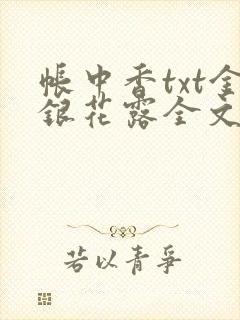 帐中香txt金
银花露全文
若以青争